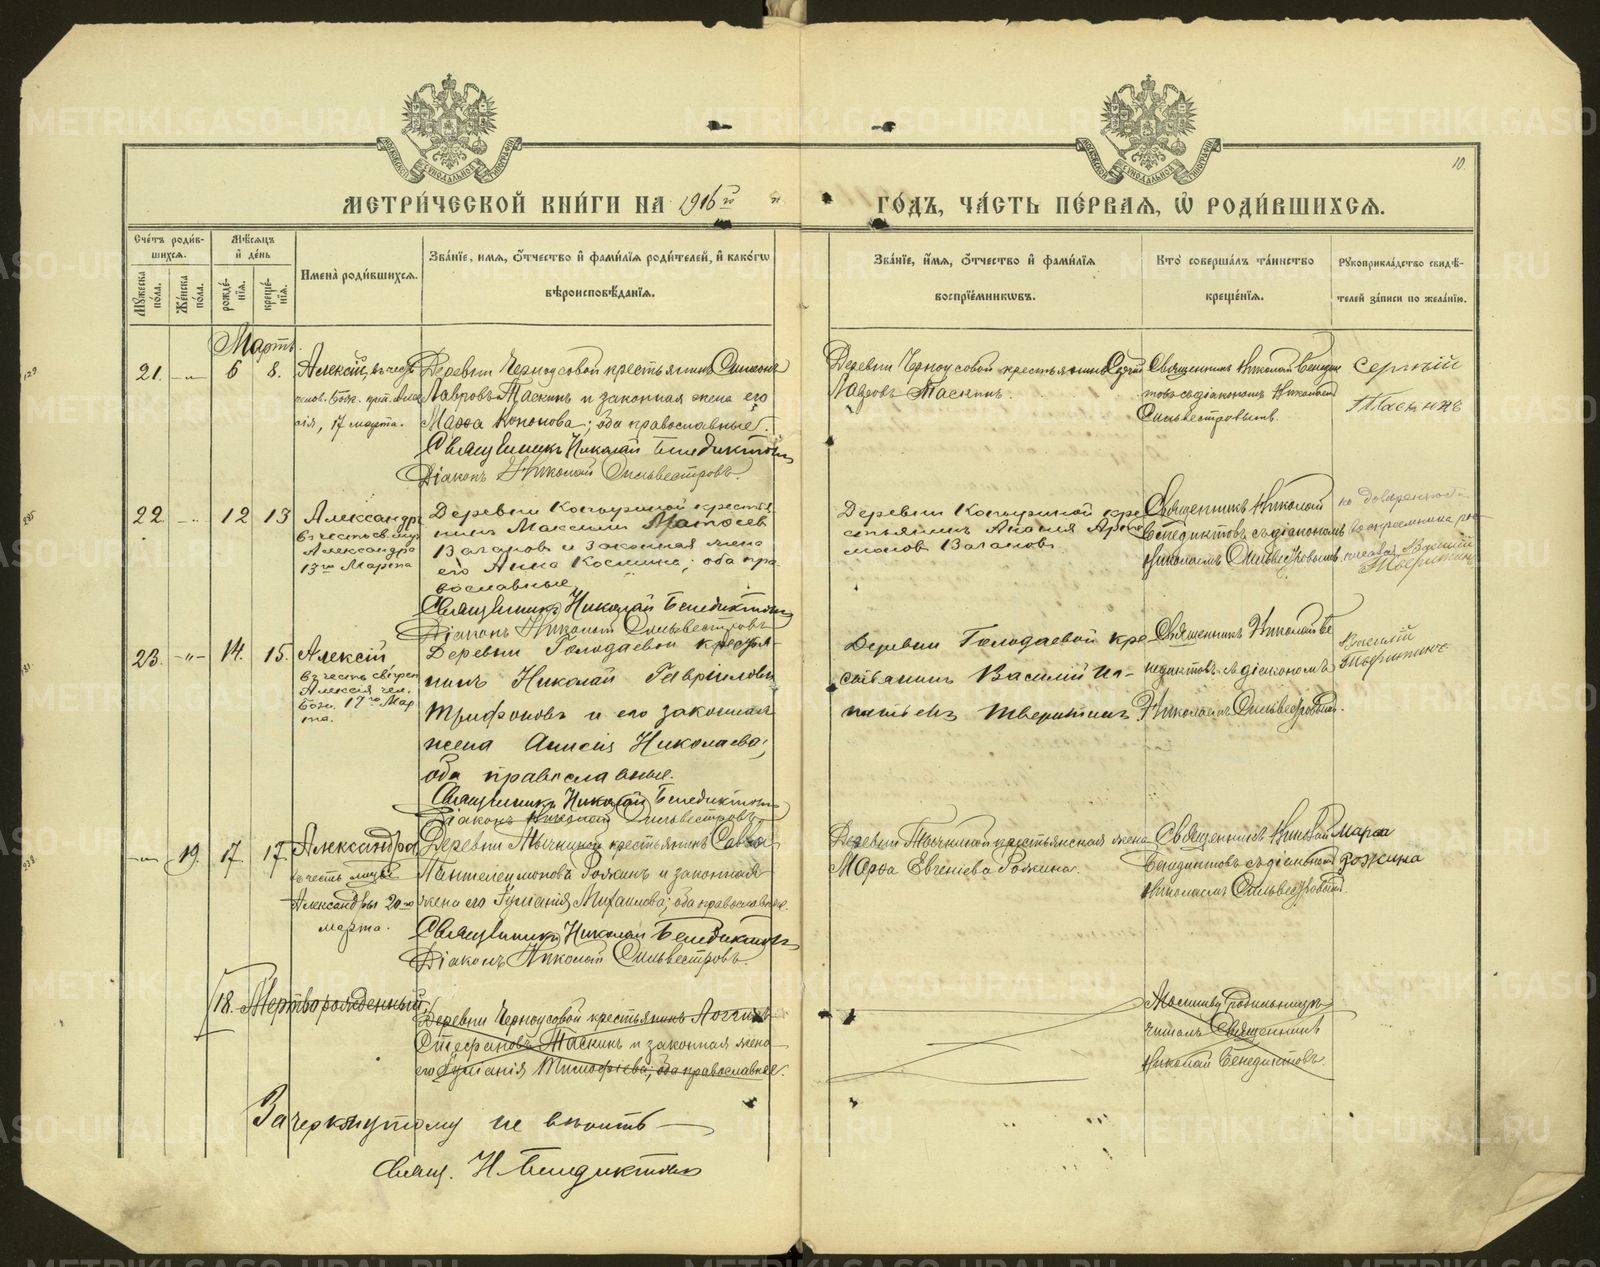 МЕТРИ́ЧЕСКОЙ КНИ́ГИ НА 1916й
ГО́ДЪ, ЧА́СТЬ ПЕ́РВАЯ, Ѡ РОДИ́ВШИХСЯ.
10.
Сче́тъ роди́в-
шихся.
Мꙋ́жеска по́ла.
Же́нска по́ла.
Мѣ́сяцъ и̓ де́нь
рожде́-нїя.
креще́-нїя.
И̓мена̀ роди́вшихся.
Зва́нїе, и́мя, ѻ́тчество и̓ фами́лїя роди́телей, и̓ како́гѡ
вѣроисповѣ́данїя.
Зва́нїе, и́мя, ѻ́тчество и̓ фами́лїя
воспрїе́мникѡвъ.
Кто̀ соверша́лъ та́инство
креще́нїя.
Рꙋкоприкла́дство свидѣ́-
телей за́писи по жела́нїю.
Мартъ.
21. —„— 6 8.
Алексій, въ честь
челов. Бож. преп. Алек
сія, 17 марта.
Деревни Черноусовой крестьянинъ Симеонъ
Лавровъ Таскинъ и законная жена его
Марѳа Кононова; оба православные.
Священникъ Николай Бенедиктовъ
Діаконъ Николай Сильвестровъ.
Деревни Черноусовой крестьянинъ Сергій
Лавровъ Таскинъ.
Священникъ Николай Бенедик
товъ съ діакономъ Николаемъ
Сильвестровымъ.
Сергѣй
Таскинъ
22 —„— 12 13
Александръ
въ честь св. муч.
Александра
13го Марта
Деревни
крестья
нинъ Максимъ Матѳеевъ
Вагановъ и законная жена
его Анна Космина; оба пра
вославные
Священникъ Николай Бенедиктовъ
Діаконъ Николай Сильвестровъ
Деревни
кре
стьянинъ Ананія Арта
моновъ Вагановъ.
Священникъ Николай
Бенедиктовъ съ діакономъ
Николаемъ Сильвестровымъ.
по довѣренности
воспреемника
Василій
Тверитинъ
23. —„— 14. 15.
Алексій
въ честь св. преп
Алексія чел.
Бож. 17го Мар
та.
Деревни Голодаевой крестья-
нинъ Николай Гавриловъ
Трифоновъ и его законная
жена Анисія Николаева;
оба православные.
Священникъ Николай Бенедиктовъ
Діаконъ Николай Сильвестровъ.
Деревни Голодаевой кре
стьянинъ Василій Ип-
патьевъ Тверитинъ
Священникъ Николай Бе
недиктовъ съ діакономъ
Николаемъ Сильвестровымъ.
Василій
Тверитинъ
—„— 19. 17 17.
Александра
въ честь муч.
Александры 20го
марта.
Деревни Мычкиной крестьянинъ Савва
Пантелеимоновъ Рожинъ и законная
жена его Іуліанія Михаилова; оба православные.
Священникъ Николай Бенедиктовъ
Діаконъ Николай Сильвестровъ.
Деревни Мычкиной крестьянская жена
Марѳа Евгеніева Рожина.
Священникъ Николай
Бенедиктовъ съ діакономъ
Николаемъ Сильвестровымъ.
Марѳа
рожина
18. Мертворожденный
Деревни Черноусовой крестьянинъ Логгинъ
Стефановъ Таскинъ и законная жена
его Іуліанія Тимофѣева; оба православные.
Молитву родильницѣ
читалъ Священникъ
Николай Бенедиктовъ.
Зачеркнутому не вѣрить —
Свящ. Н. Бенедиктовъ
METRIKI.GASO-URAL.RU